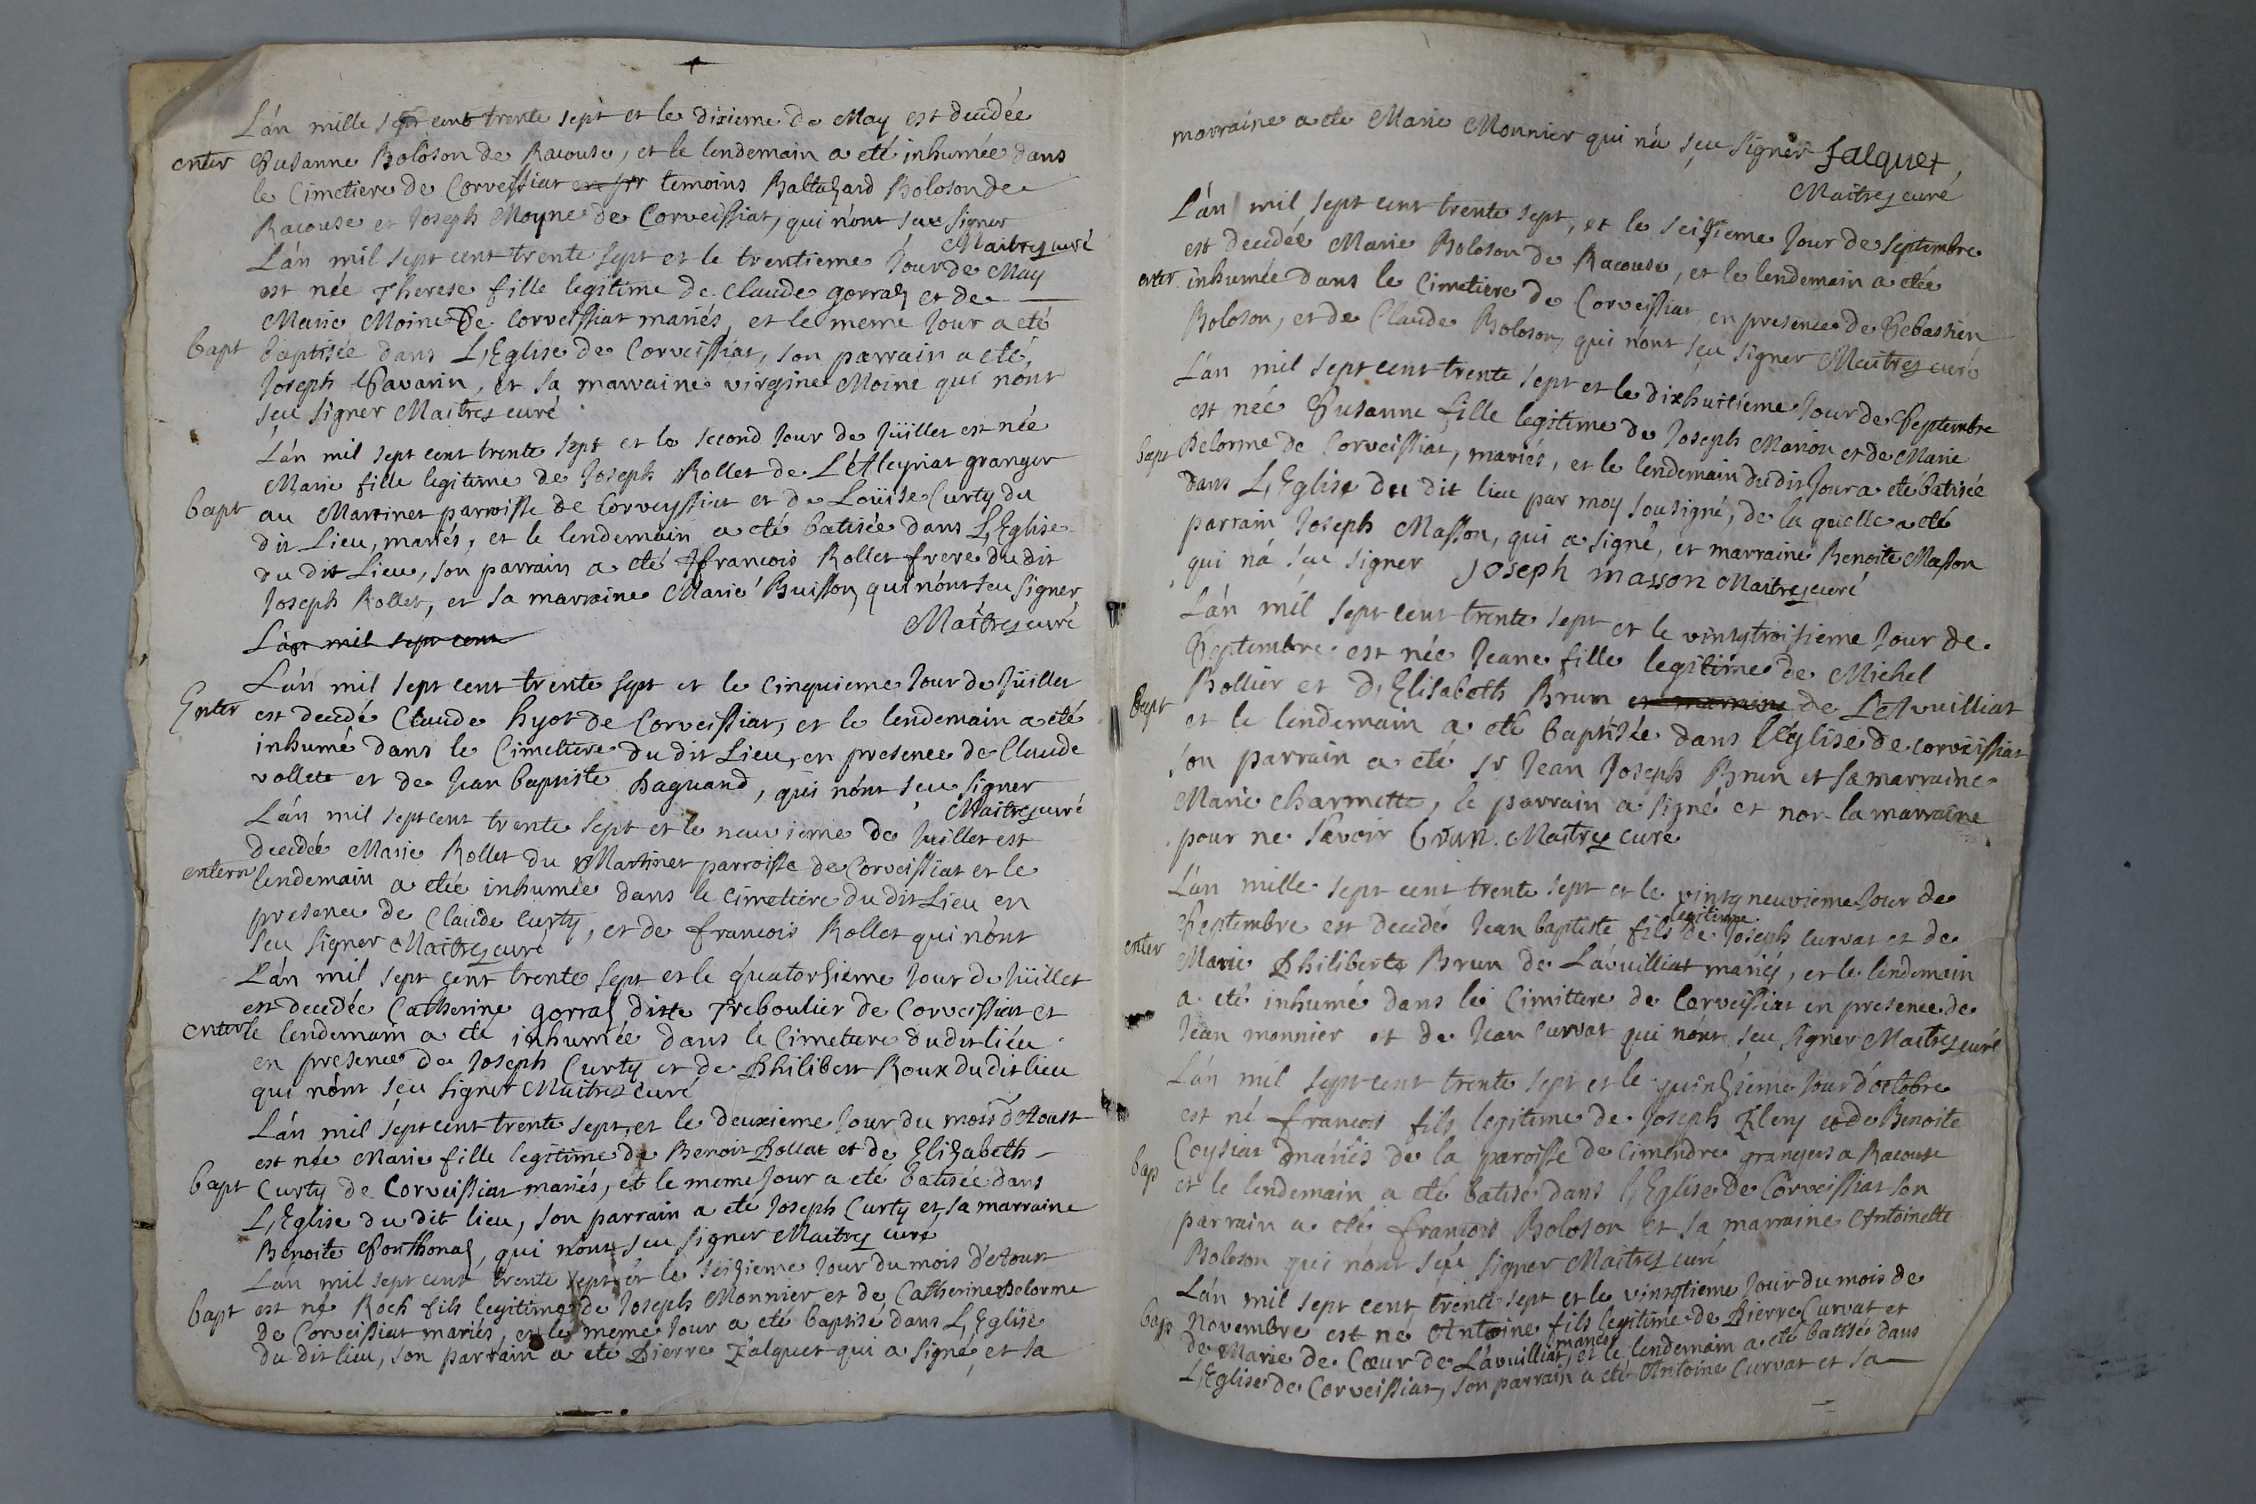 L'án mille sept cent trente sept et le dixieme de May est decedée
enter Susanne Boloson de Racouse, et le lendemain a eté inhumée dans
le Cimetiere de Corveissiat temoins Baltasard Boloson de
Racouse et Joseph Moyne de Corveissiat, qui nónt sçu signer
Maitrez curé
L'án mil sept cent trente sept et le trentieme Jour de May
est née Therese fille legitime de Claude gorraz et de
Marie Moine De Corveissiat mariés, et le meme Jour a eté
bapt baptisée dans L'Eglise de Corveissiat, son parrain a eté
Joseph Savarin, et sa marraine virgine Moine qui nónt
sçu signer Maitrez curé
L'án mil sept cent trente sept et le second Jour de Jüillet est née
Marie fille legitime de Joseph Rollet de L'éAleyriat granger
bapt au Martinet parroisse de Corveyssiat et de Loüise Curty du
dit Lieu, mariés, et le lendemain a eté batisée dans L'Eglise
du dit Lieu, son parrain a eté francois Rollet frere du dit
Joseph Rollet, et sa marraine Marie Buisson, qui nónt sçu signer
Maitrez curé
L'án mil sept cent
L'án mil sept cent trente sept et le Cinquieme Jour de Jüillet
Enter est decedé Claude hyot de Corveissiat, et le lendemain a eté
inhumé dans le Cimettere du dit Lieu, en presence de Claude
vollete et de Jean baptiste Daguand, qui nónt sçu signer
Maitrez curé
L'án mil sept cent trente sept et le neuvieme de Juillet est
decedée Marie Rollet du Martinet parroisse de Corveissiat et le
enterr lendemain a etée inhumée dans le Cimetiere du dit Lieu en
presence de Claude Curty, et de francois Rollet qui nónt
sçu signer Maitrez curé
L'án mil sept cent trente sept et le quatorsieme Jour de Jüillet
est decedée Catherine gorraz ditte Treboulier de Corveissiat et
enter le lendemain a eté inhumée dans le Cimetiere du dit liéu
en presence de Joseph Curty et de Philibert Roux du dit lieu
qui nónt sçu signer Maitrez curé
L'án mil sept cent trente sept, et le deuxieme Jour du mois d'Aoust
est née Marie fille legitime de Benoit Pollat et de Elizabeth
bapt Curty de Corveissiat mariés, et le meme Jour a eté batisée dans
L'Eglise du dit lieu, son parrain a eté Joseph Curty et sa marraine
Benoite Ponthonaz, qui nónt sçu signer Maitrez curé
L'án mil sept cent trente sept et le seizieme Jour du mois d'Aoust
bapt est né Roch fils legitime de Joseph Monnier et de Catherine Delorme
de Corveissiat mariés, et le meme Jour a eté baptisé dans L'Eglise
du dit lieu, son parrain a eté Pierre Jalquet qui a signé, et sa
marraine a eté Marie Monnier qui ná sçu signer Jalquet
Maitrez curé
L'án mil sept cent trente sept, et le seizieme Jour de septembre
est decedée Marie Boloson de Racouse, et le lendemain a etée
enter inhumée dans le Cimetiere de Corveissiat, en presence de Sebastien
Boloson, et de Claude Boloson, qui nónt sçu signer Maitrez curé
L'án mil sept cent trente sept et le dixhuitieme Jour de Septembre
est née Susanne fille legitime de Joseph Marion et de Marie
bapt Delorme de Corveissiat, mariés, et le lendemain du dit Jour a eté batisée
dans L'Eglise du dit lieu par moy sousigné, de la quelle a eté
parrain Joseph Masson, qui a signé, et marraine Benoite Masson
qui ná sçu signer Joseph masson Maitrez curé
L'án mil sept cent trente sept et le vintgtroisieme Jour de
Septembre est née Jeane fille legitime de Michel
bapt Bollier et D'Elisabeth Brun et marraine de LeAvuilliat
et le lendemain a eté baptisée dans l'église de corveissiat
son parrain a eté sr Jean Joseph Brun et sa marraine
Marie charmette, le parrain a signé et non la marraine
pour ne savoir brun Maitrez curé
L'án mille sept cent trente sept et le vintg neuvieme Jour de
Septembre est decedé Jean baptiste fils legitime de Joseph Curvat et de
enter Marie Philiberte Brun de Lávuilliat mariés, et le lendemain
a eté inhumé dans le Cimittere de Corveissiat en presence de
Jean monnier et de Jean Curvat qui nónt sçu signer Maitrez curé
L'án mil sept cent trente sept et le quinzieme Jour d'octobre
est né francois fils legitime de Joseph et de Benoite
bap Coysiat mariés de la paroisse de Cimandre grangers a Racouse
et le lendemain a eté batisé dans l'Eglise de Corveissiat son
parrain a eté francois Boloson et sa marraine Antoinette
Boloson qui nónt sçu signer Maitrez curé
L'án mil sept cent trente sept et le vintgtieme Jour du mois de
bap Novembre est né Antoine fils legitime de Pierre Curvat et
de Marie de Coeur de Lávuilliat, mariés et le lendemain a eté batisé dans
L'Eglise de Corveissiat, son parrain a eté Antoine Curvat et sa